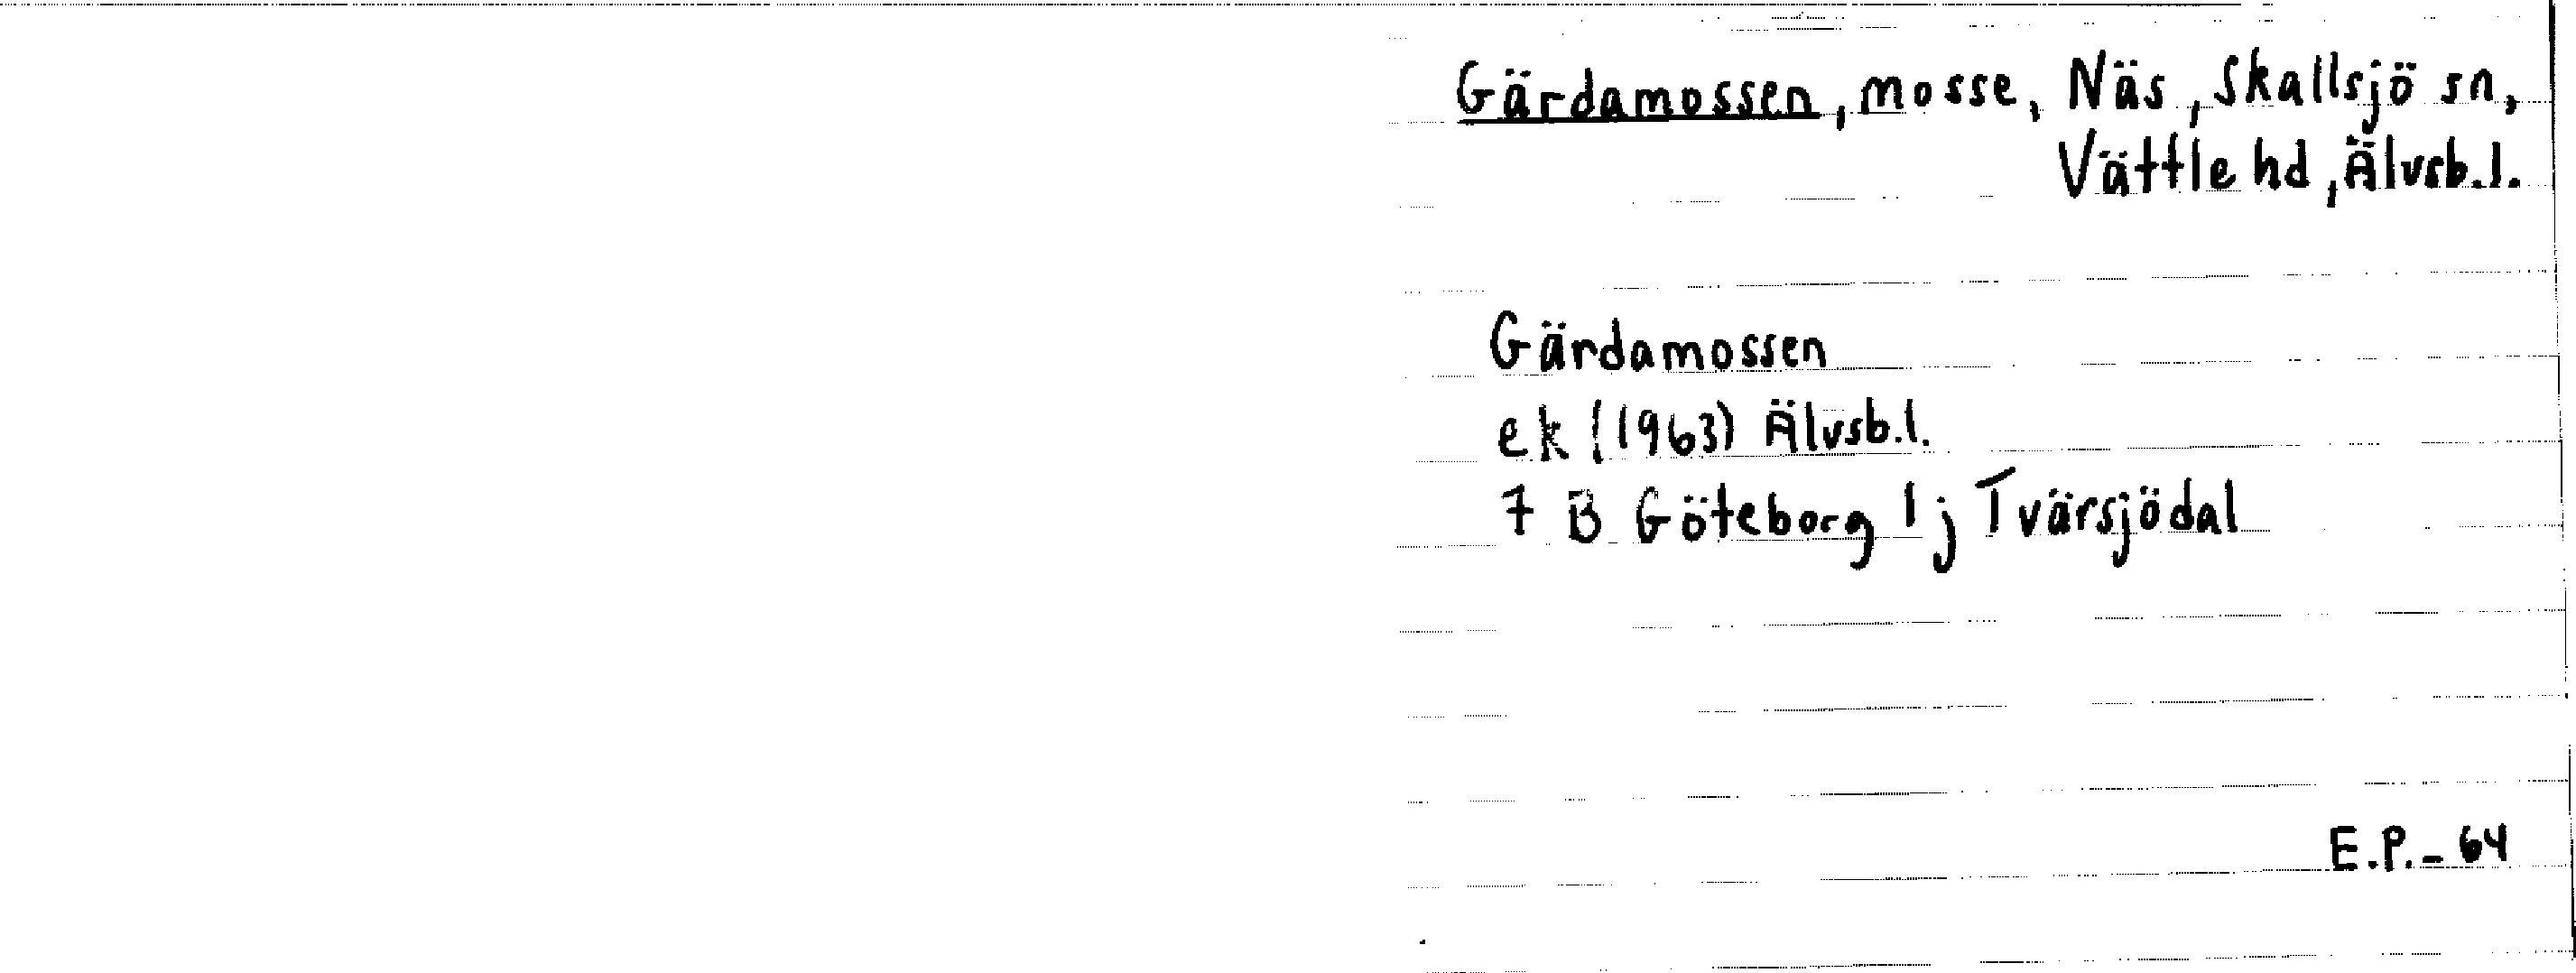 Gärdamossen, mosse, Näs, Skallsjö sn,
Vättle hd, Älvsb.l.
Gärdamossen
ek (1963) Älvsb.l.
7 B Göteborg 1 j Tvärsjödal
E.P.-64